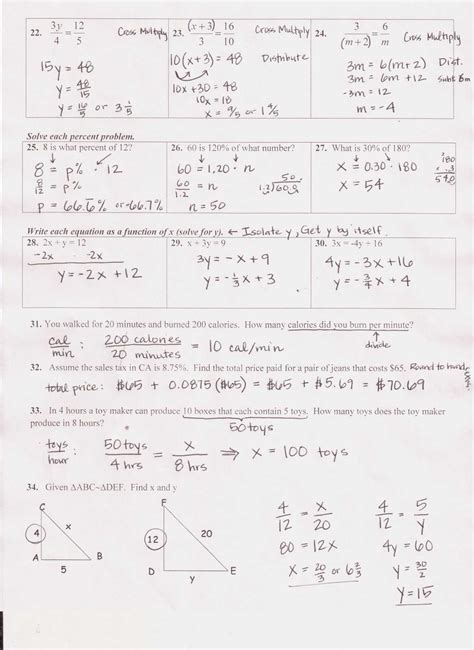 22. 3y/4 = 12/5 Cross Multiply
15y = 48
y = 48/15
y = 16/5 or 3 1/5
23. (x+3)/3 = 16/10 Cross Multiply
10(x+3) = 48 Distribute
10x + 30 = 48
10x = 18
x = 9/5 or 1 4/5
24. 3/(m+2) = 6/m Cross Multiply
3m = 6(m+2) Dist.
3m = 6m + 12 Subt 6m
-3m = 12
m = -4
Solve each percent problem.
25. 8 is what percent of 12?
8 = p% · 12
8/12 = p%
p = 66.6% or 66.7%
26. 60 is 120% of what number?
60 = 1.20 · n
60/1.2 = 1.2/1.2 n
50.
1.2)60.0
n = 50
27. What is 30% of 180?
x = 0.30 · 180
x = 54
180
x .3
54.0
Write each equation as a function of x (solve for y). ← Isolate y, Get y by itself.
28. 2x + y = 12
-2x -2x
y = -2x + 12
29. x + 3y = 9
3y = -x + 9
y = -1/3 x + 3
30. 3x = -4y + 16
4y = -3x + 16
y = -3/4 x + 4
31. You walked for 20 minutes and burned 200 calories. How many calories did you burn per minute?
cal/min : 200 calories/20 minutes = 10 cal/min
↑ divide
32. Assume the sales tax in CA is 8.75%. Find the total price paid for a pair of jeans that costs $65. Round to hundreths
total price: $65 + 0.0875($65) = $65 + $5.69 = $70.69
33. In 4 hours a toy maker can produce 10 boxes that each contain 5 toys. How many toys does the toy maker
produce in 8 hours?
50 toys
toys/hour : 50 toys/4 hrs = x/8 hrs ⇒ x = 100 toys
34. Given ΔABC~ΔDEF. Find x and y
C
4
x
A
B
5
F
12
20
D
y
E
4/12 = x/20
80 = 12x
x = 20/3 or 6 2/3
4/12 = 5/y
4y = 60
y = 30/2
y = 15